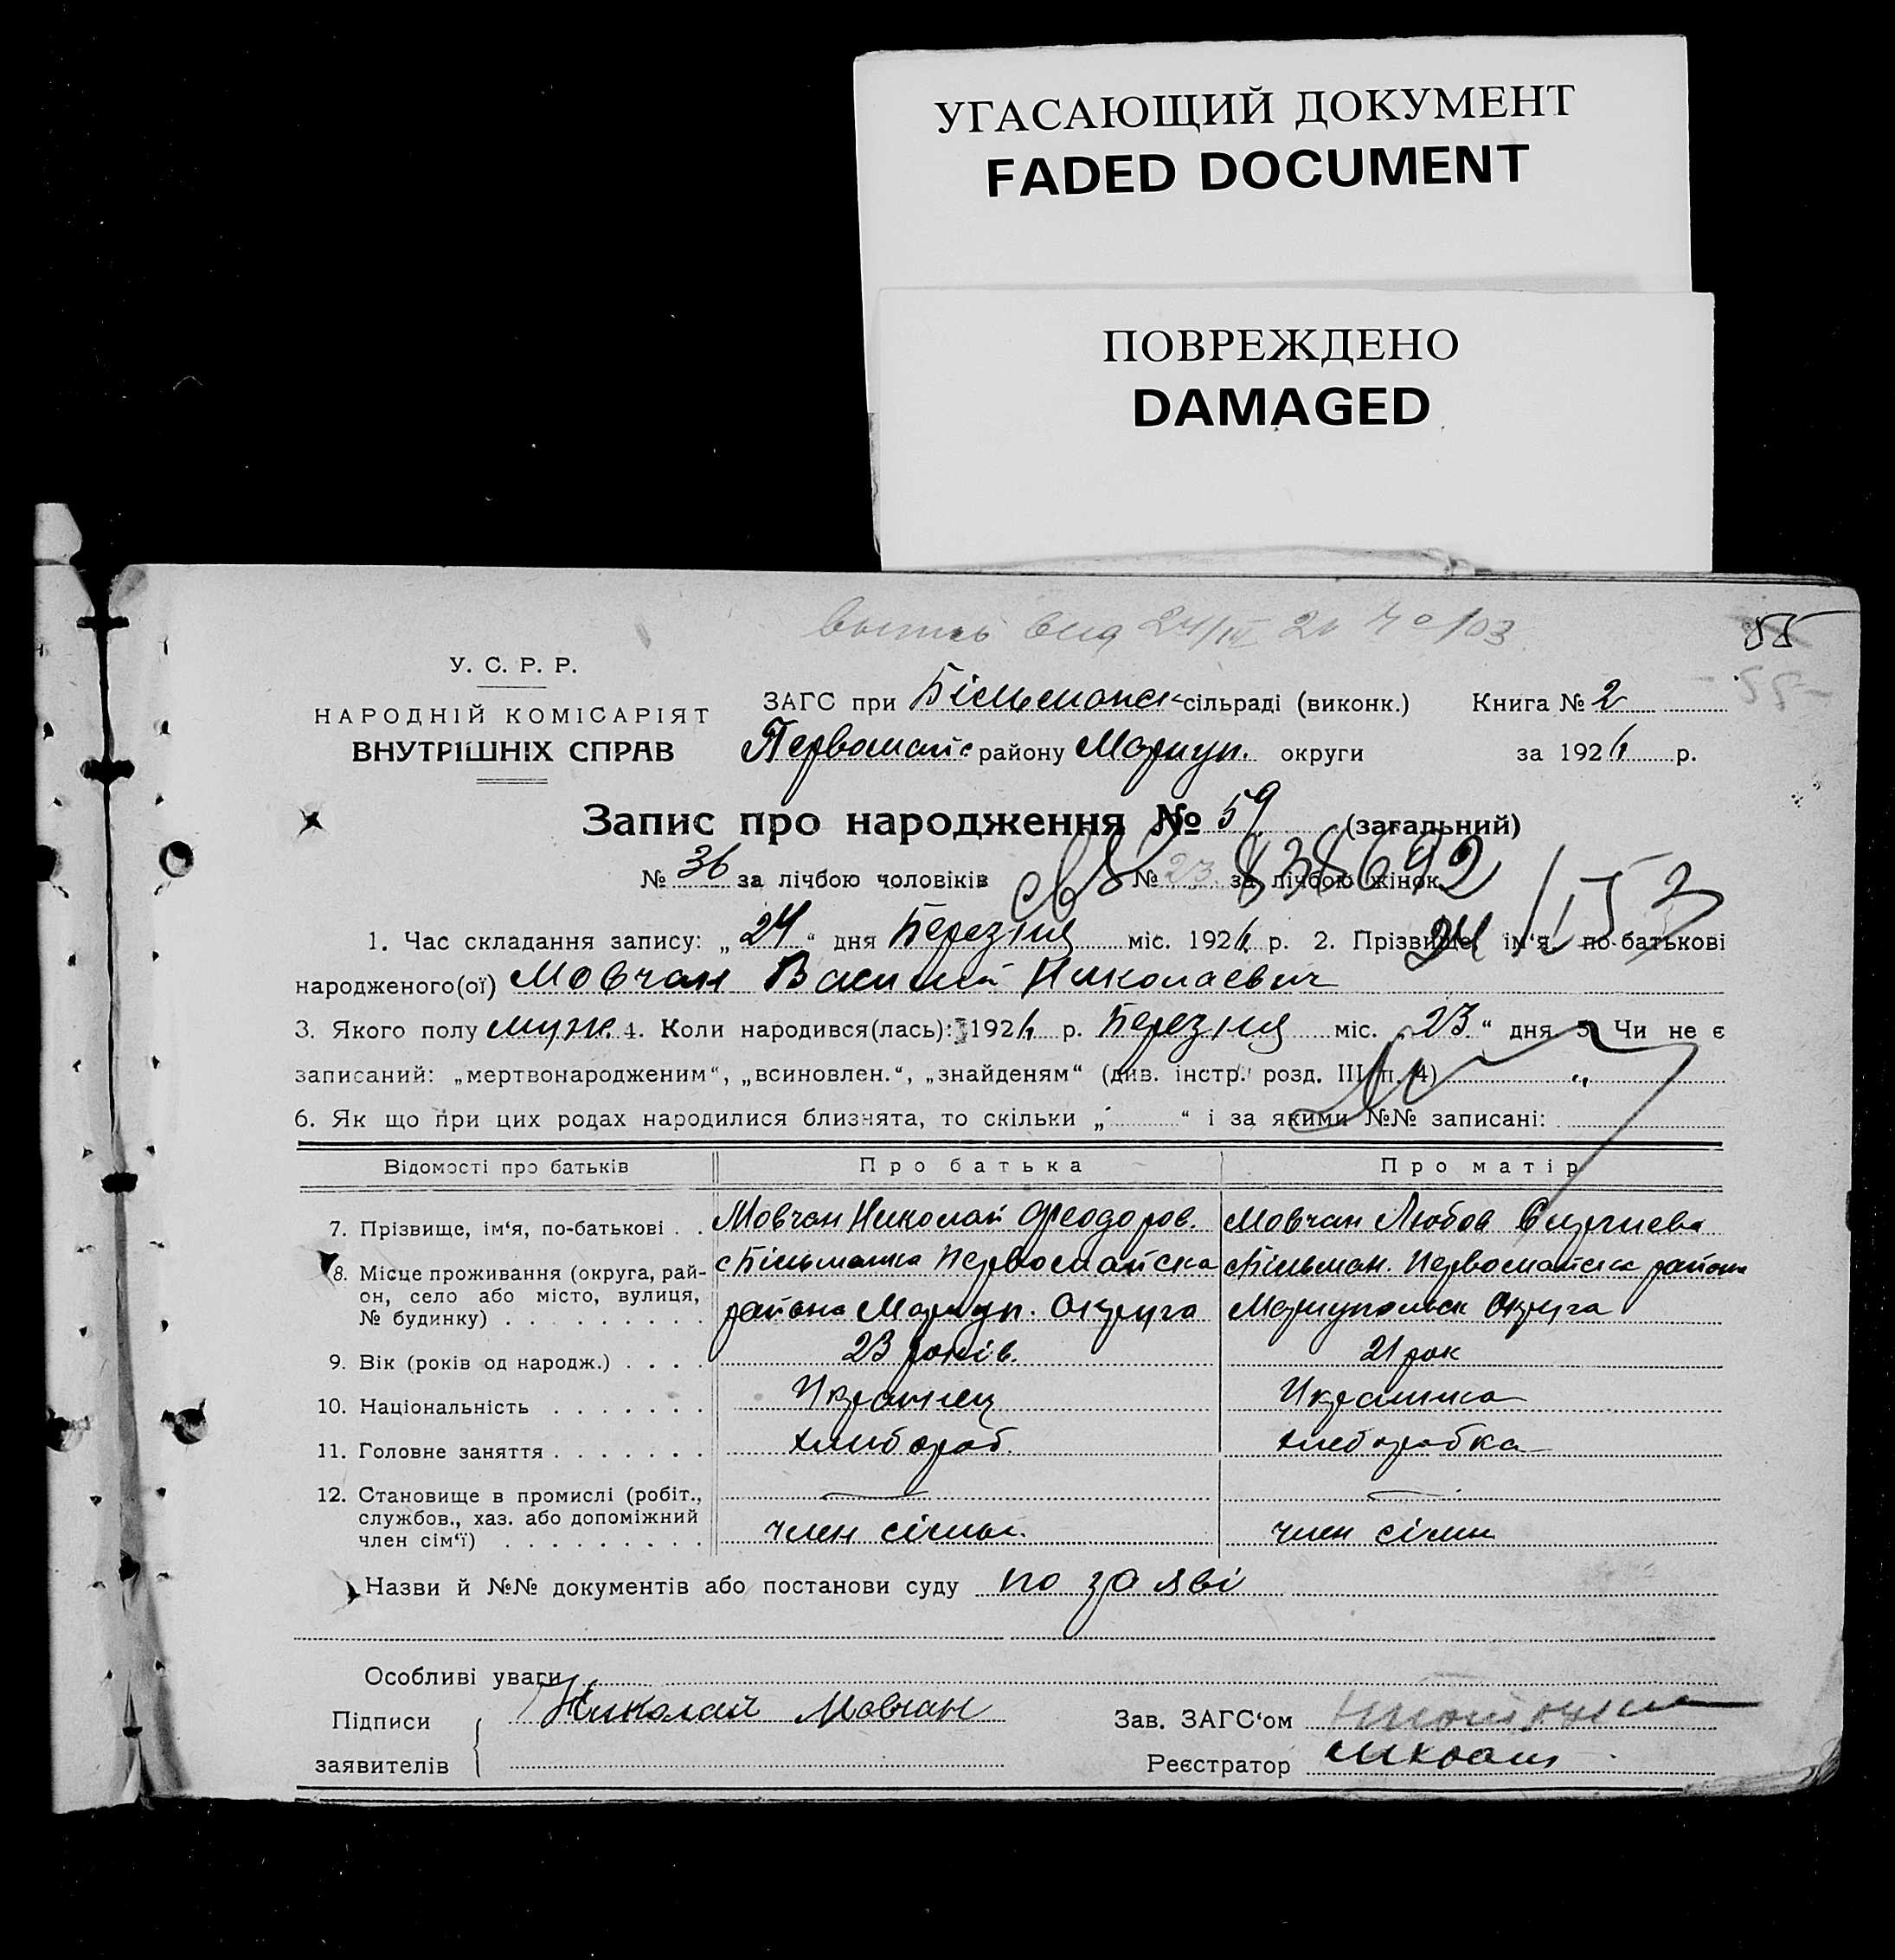 УГАСАЮЩИЙ ДОКУМЕНТ
FADED DOCUMENT
ПОВРЕЖДЕНО
DAMAGED
24/IV
55
55
У. С. Р. Р.
НАРОДНІЙ КОМІСАРІЯТ
ВНУТРІШНІХ СПРАВ
ЗАГС при Більманск сільраді (виконк.) Книга № 2
Первомайс району Мариуп. округи за 1926 р.
Запис про народження № 59 (загальний)
№ 36 за лічбою чоловіків № 23 за лічбою жінок
838692
1. Час складання запису: „24“ дня Березня міс. 1926 р. 2. Прізвище, ім‘я, по-батькові
народженого(ої) Мовчан Василий Николаевич
3. Якого полу муж. 4. Коли народився(лась): 1926 р. Березня міс. „23“ дня 5. Чи не є
записаний: „мертвонародженим“, „всиновлен.“, „знайденям“ (див. інстр. розд. III п. 4)
6. Як що при цих родах народилися близнята, то скільки „ “ і за якими №№ записані:
Відомості про батьків Про батька Про матір
7. Прізвище, ім‘я, по-батькові . . Мовчан Николай Феодоров. Мовчан Любов
8. Місце проживання (округа, рай- с Більманка Первомайска с Більман. Первомайска района
он, село або місто, вулиця,
№ будинку) . . . . . . . . . района Мариуп. Округа Мариупольск Округа
9. Вік (років од народж.) . . . . 23 років. 21 рок
10. Національність . . . . . . . Украинец Украинка
11. Головне заняття . . . . . . . хлибороб. хлеборобка
12. Становище в промислі (робіт., — —
службов., хаз. або допоміжний
член сім‘ї) . . . . . . . . . член сімьи. член сімьи
Назви й №№ документів або постанови суду по заяві
Особливі уваги
Підписи Николай Мовчан Зав. ЗАГС‘ом
заявителів Реєстратор